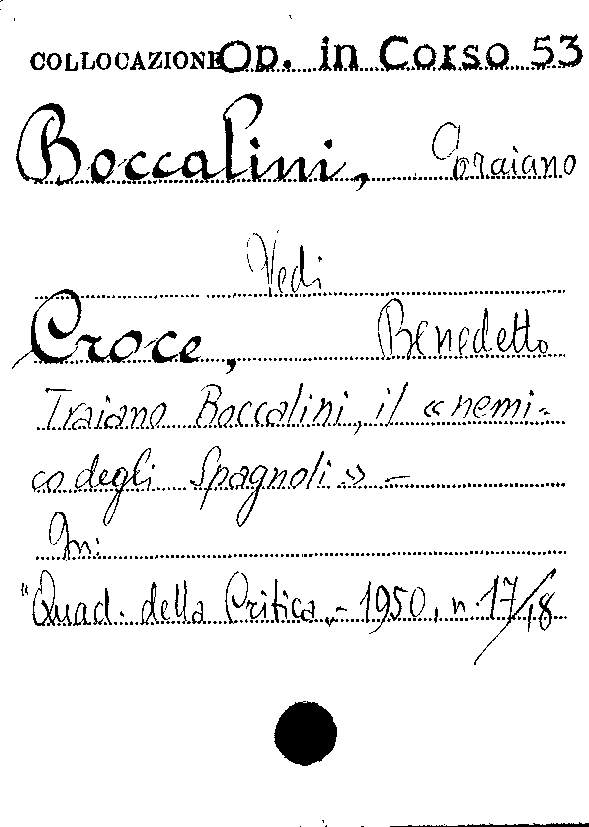 COLLOCAZIONE Op. in Corso 53
Boccalini, Traiano
Vedi
Croce, Benedetto
Traiano Boccalini, il «nemi-
co degli Spagnoli» –
In:
"Quad. della Critica„ – 1950, n. 17/18